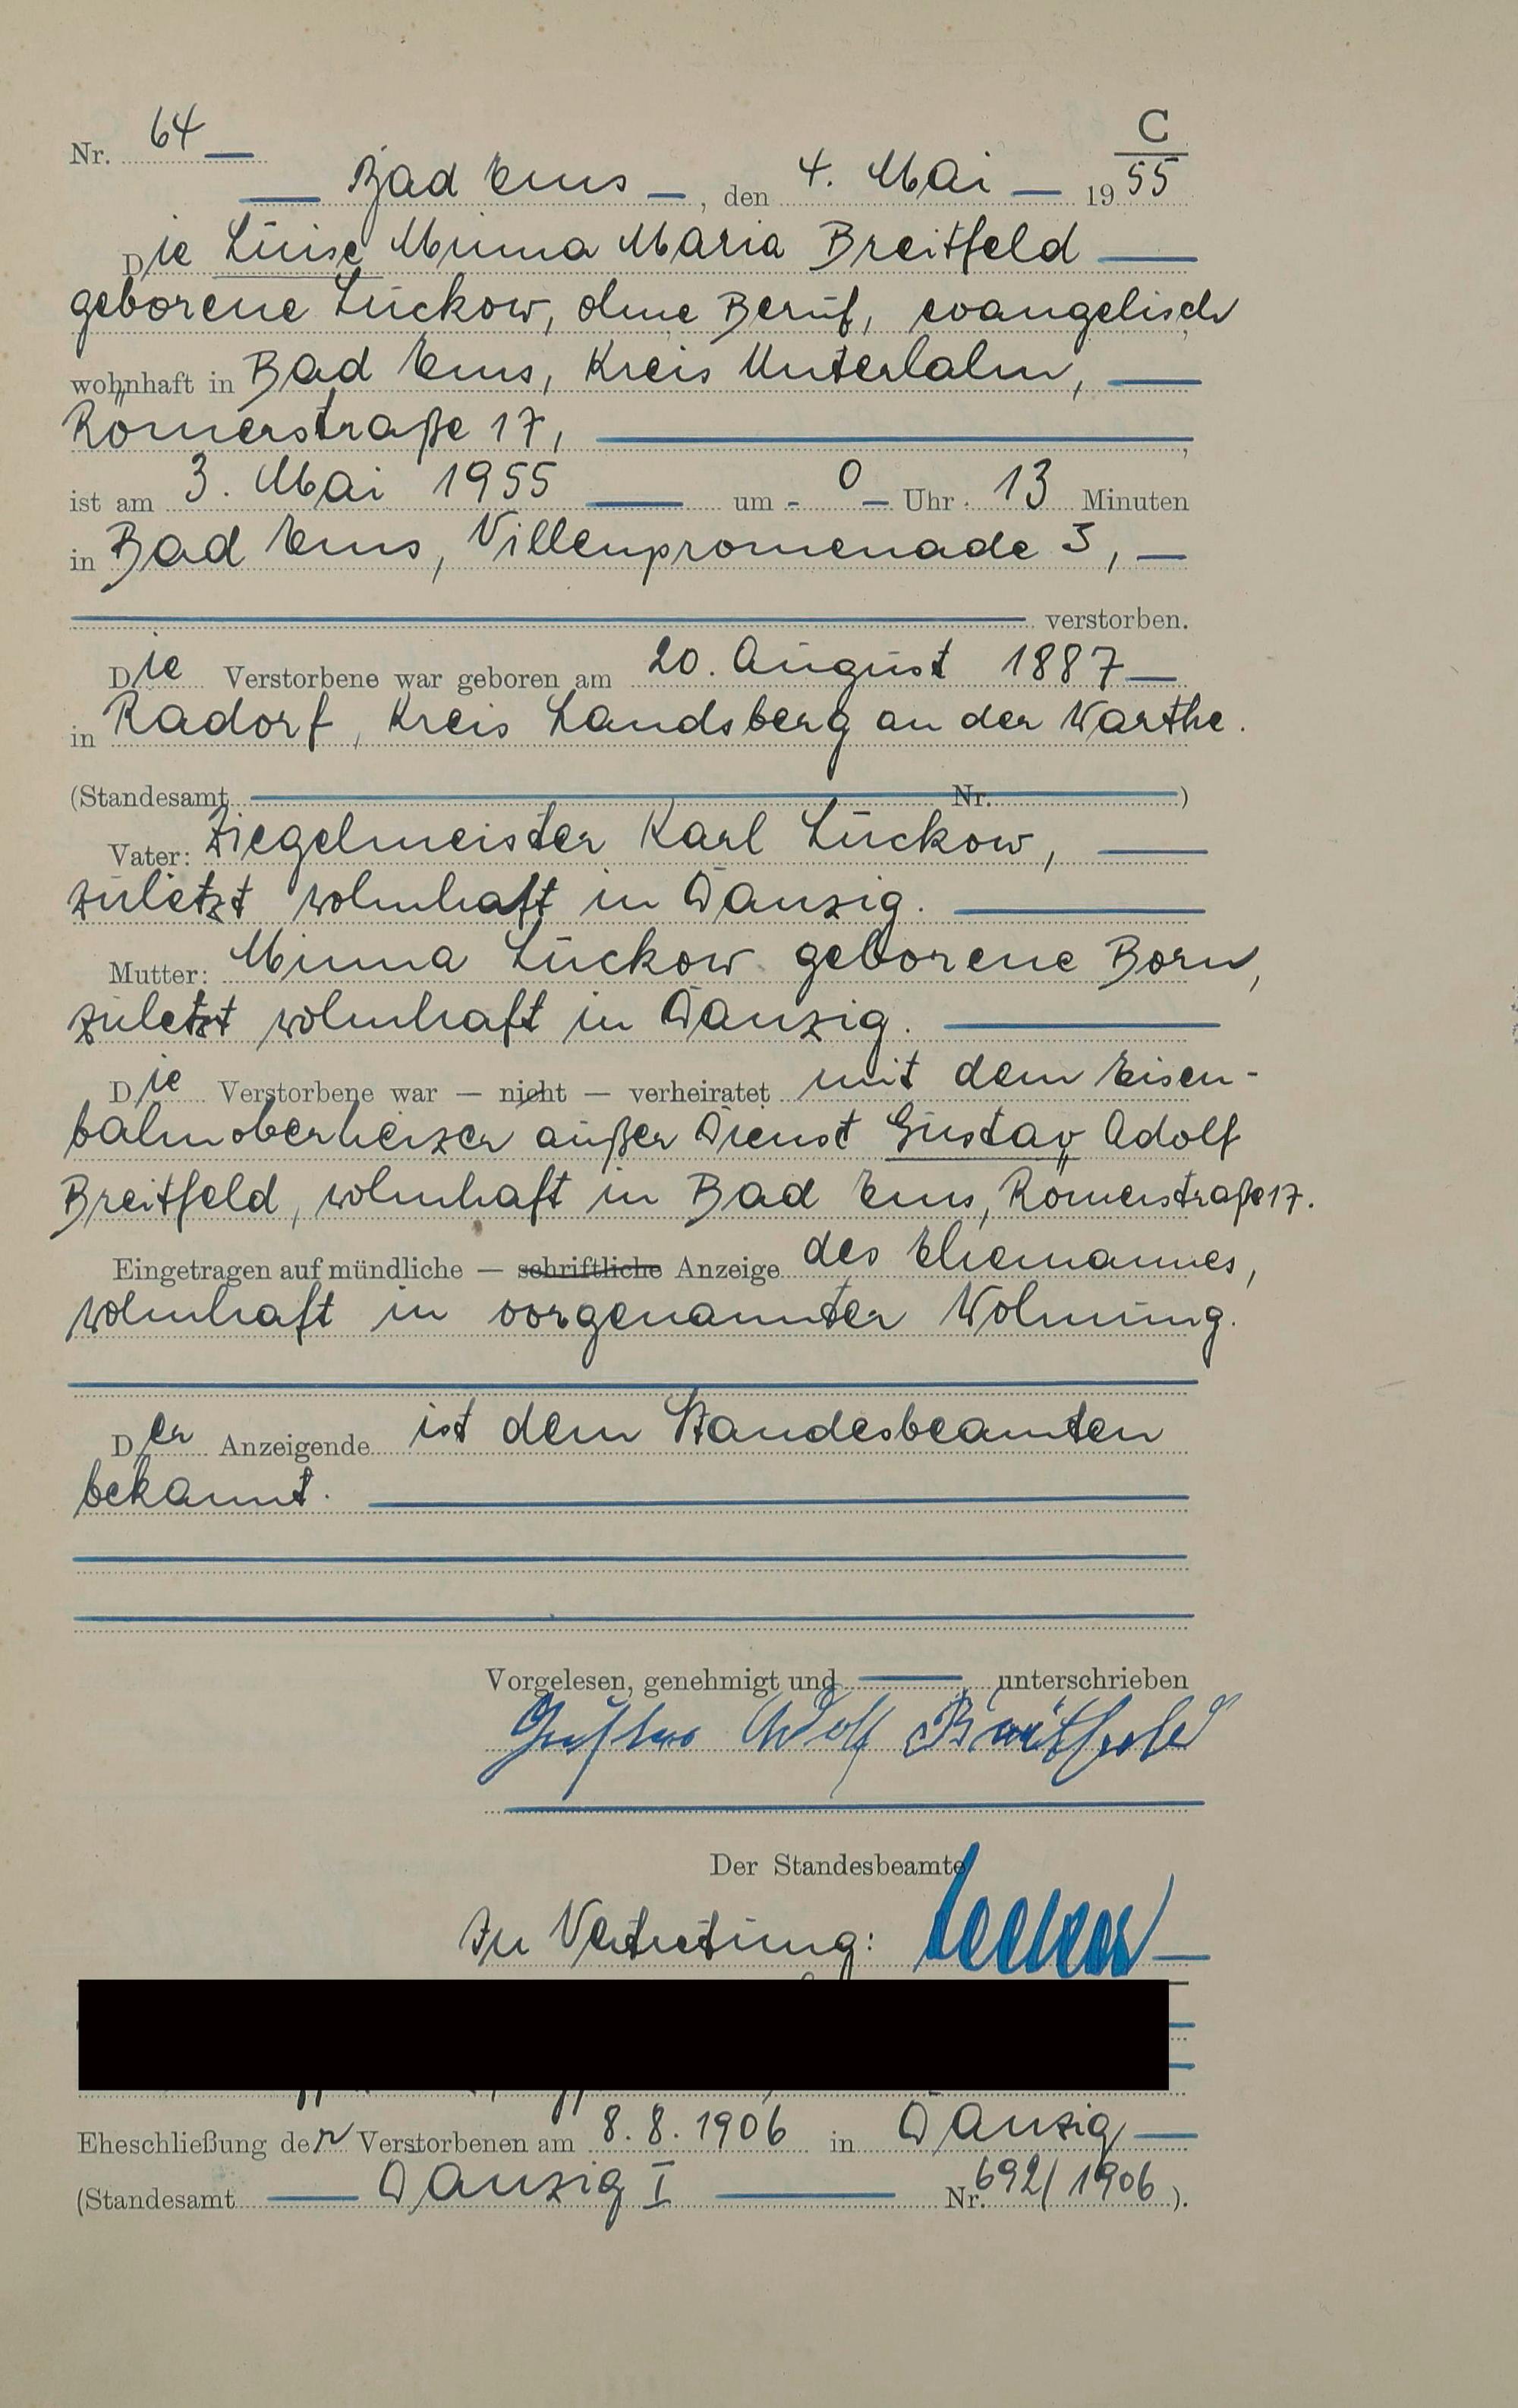 C
Nr. 64
Bad Ems, den 4. Mai 1955
Die Luise Minna Maria Breitfeld
geborene Luckow, ohne Beruf, evangelisch,
wohnhaft in Bad Ems, Kreis Unterlahn,
Römerstraße 17,
ist am 3. Mai 1955 um 0 Uhr 13 Minuten
in Bad Ems, Villenpromenade 3,
verstorben.
Die Verstorbene war geboren am 20. August 1887
in Radorf, Kreis Landsberg an der Warthe.
(Standesamt Nr. )
Vater: Ziegelmeister Karl Luckow,
zuletzt wohnhaft in Danzig.
Mutter: Minna Luckow geborene Born,
zuletzt wohnhaft in Danzig.
Die Verstorbene war — nicht — verheiratet mit dem Eisen-
bahnoberheizer außer Dienst Gustav Adolf
Breitfeld, wohnhaft in Bad Ems, Römerstraße 17.
Eingetragen auf mündliche — schriftliche Anzeige des Ehemannes,
wohnhaft in vorgenannter Wohnung.
Der Anzeigende ist dem Standesbeamten
bekannt.
Vorgelesen, genehmigt und unterschrieben
Gustav Adolf Breitfeld
Der Standesbeamte
In Vertretung:
Eheschließung der Verstorbenen am 8.8.1906 in Danzig
(Standesamt Danzig I Nr. 692/1906).